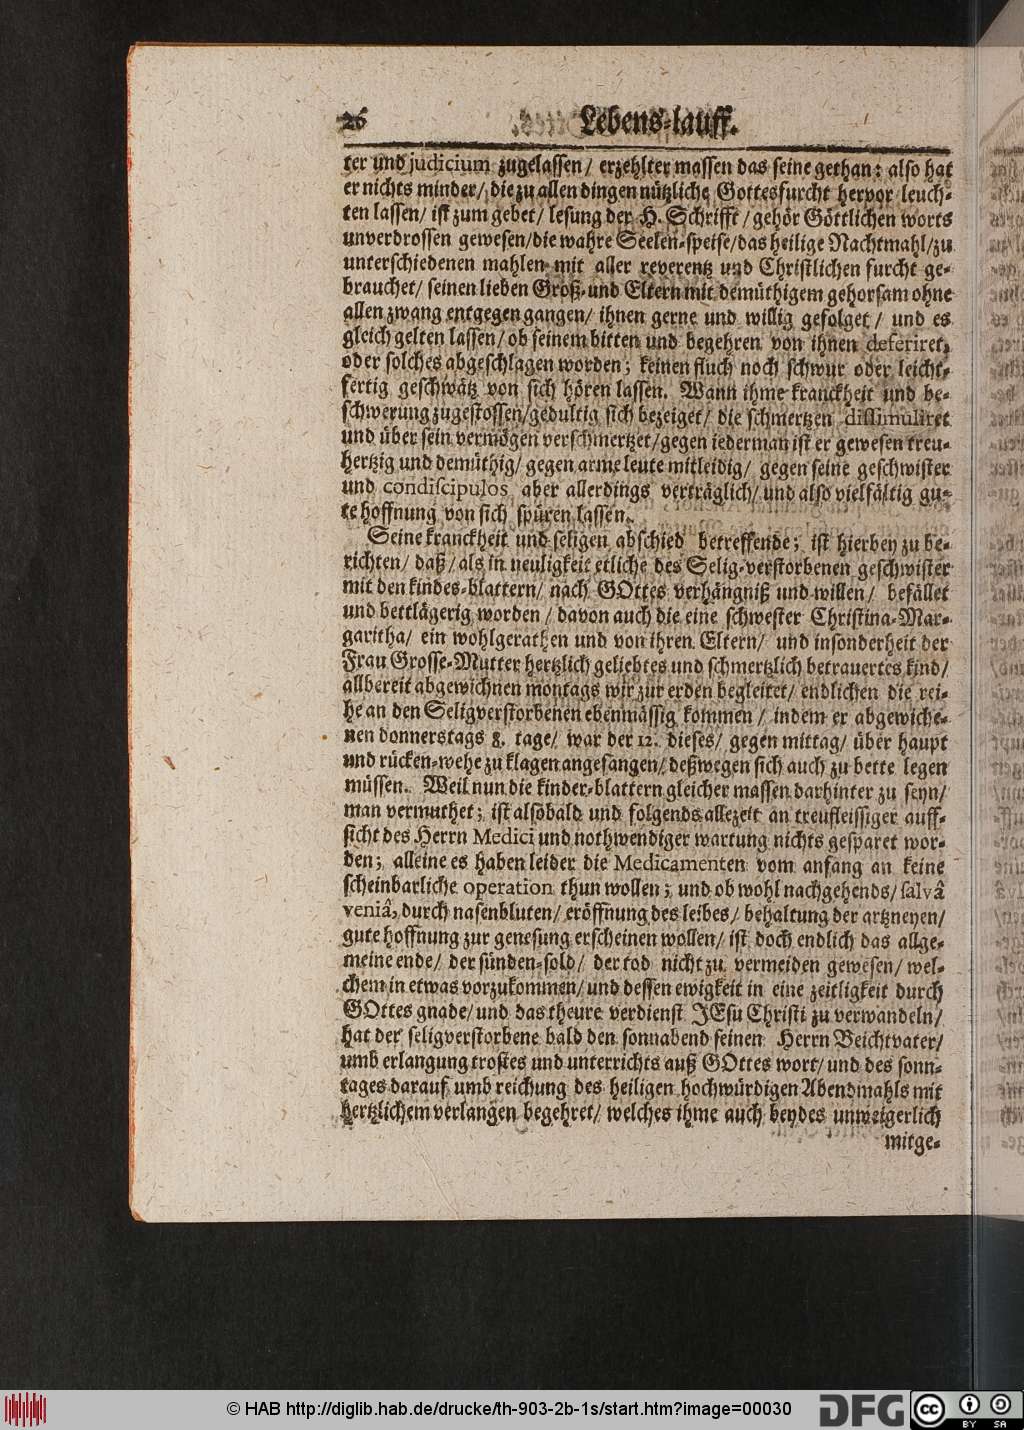 26 Lebens-lauff.
ter und judicium zugelassen / erzehlter massen das seine gethan: also hat
er nichts minder / die zu allen dingen nützliche Gottesfurcht hervor leuch-
ten lassen / ist zum gebet / lesung der H. Schrifft / gehör Göttlichen worts
unverdrossen gewesen / die wahre Seelen-speise / das heilige Nachtmahl / zu
unterschiedenen mahlen mit aller reverentz und Christlichen furcht ge-
brauchet / seinen lieben Groß- und Eltern mit demüthigem gehorsam ohne
allen zwang entgegen gangen / ihnen gerne und willig gefolget / und es
gleich gelten lassen / ob seinem bitten und begehren von ihnen deferiret,
oder solches abgeschlagen worden; keinen fluch noch schwur oder leicht-
fertig geschwätz von sich hören lassen. Wann ihme kranckheit und be-
schwerung zugestossen / gedultig sich bezeiget / die schmertzen dissimuliret
und über sein vermögen verschmertzet / gegen iederman ist er gewesen treu-
hertzig und demüthig / gegen arme leute mitleidig / gegen seine geschwister
und condiscipulos aber allerdings verträglich / und also vielfältig gu-
te hoffnung von sich spüren lassen.
Seine kranckheit und seligen abschied betreffende; ist hierbey zu be-
richten / daß / als in neuligkeit etliche des Selig-verstorbenen geschwister
mit den kindes-blattern / nach GOttes verhängniß und willen / befället
und bettlägerig worden / davon auch die eine schwester Christina-Mar-
garitha / ein wohlgerathen und von ihren Eltern / und insonderheit der
Frau Grosse-Mutter hertzlich geliebtes und schmertzlich betrauertes kind /
allbereit abgewichnen montags wir zur erden begleitet / endlichen die rei-
he an den Seligverstorbenen ebenmässig kommen / indem er abgewiche-
nen donnerstags 8. tage / war der 12. dieses / gegen mittag / über haupt
und rücken-wehe zu klagen angefangen / deßwegen sich auch zu bette legen
müssen. Weil nun die kinder-blattern gleicher massen darhinter zu seyn /
man vermuthet; ist alsobald und folgends allezeit an treufleissiger auff-
sicht des Herrn Medici und nothwendiger wartung nichts gesparet wor-
den; alleine es haben leider die Medicamenten vom anfang an keine
scheinbarliche operation thun wollen; und ob wohl nachgehends / salvâ
veniâ, durch nasenbluten / eröffnung des leibes / behaltung der artzneyen /
gute hoffnung zur genesung erscheinen wollen / ist doch endlich das allge-
meine ende / der sünden-sold / der tod nicht zu vermeiden gewesen / wel-
chem in etwas vorzukommen / und dessen ewigkeit in eine zeitligkeit durch
GOttes gnade / und das theure verdienst JEsu Christi zu verwandeln /
hat der seligverstorbene bald den sonnabend seinen Herrn Beichtvater /
umb erlangung trostes und unterrichts auß GOttes wort / und des sonn-
tages darauf umb reichung des heiligen hochwürdigen Abendmahls mit
hertzlichem verlangen begehret / welches ihme auch beydes unweigerlich
mitge-
© HAB http://diglib.hab.de/drucke/th-903-2b-1s/start.htm?image=00030
DFG
cc BY SA